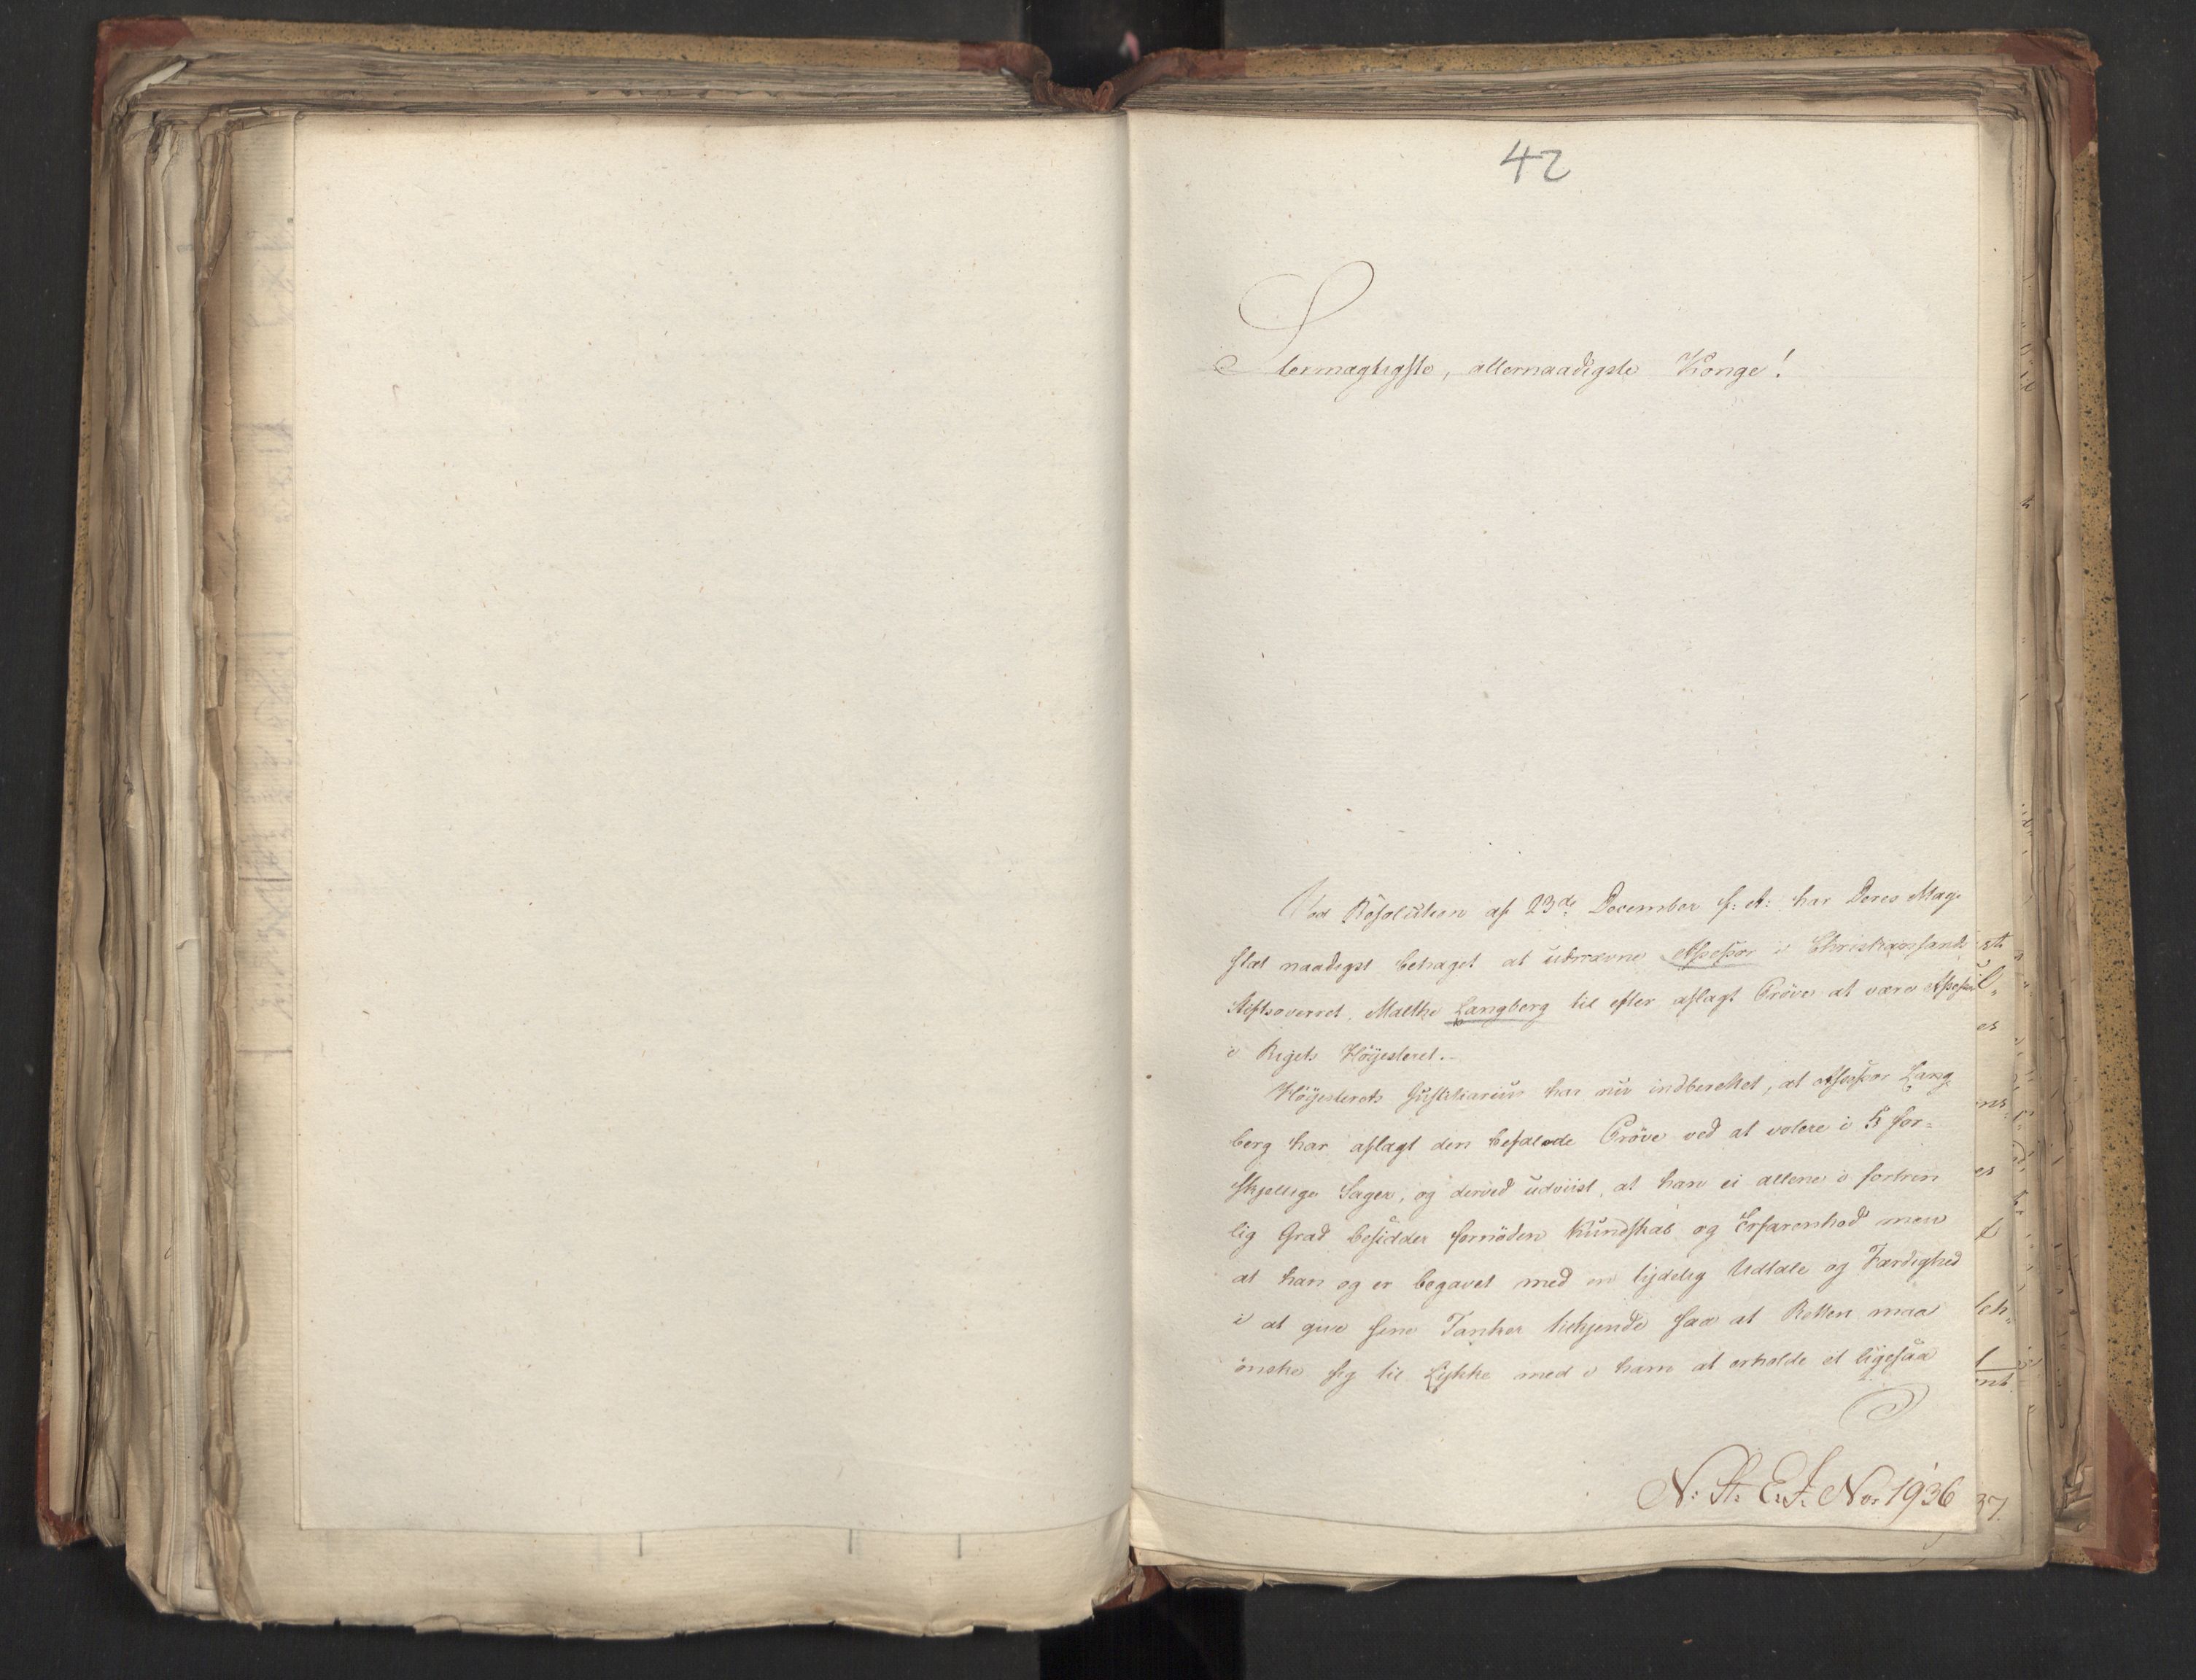 42
Stormægtigste, allernaadigste Konge!
Ved Resolution af 23de December f: A: har Deres Maje
stæt naadigst behaget at udnævne Assessor i Christiansands
Stiftsoverret, Malthe Langberg til efter aflagt Pröve at være Assessor
i Rigets Höyesteret.-
Höyesterets Justitiarius har nu indberettet, at Assessor Lang
berg har aflagt den befalede Pröve ved at votere i 5 for=
skjellige Sager, og derved udviist, at han ei allene i fortrin
lig Grad besidder fornöden Kundskab og Erfarenhed men
at han og er begavet med en tydelig Udtale og Færdighed
i at give sine Tanker tilkjende saa at Retten maa
önske sig til Lykke med i ham at erholde et ligesaa
N: St: E: J: No: 1936
37.